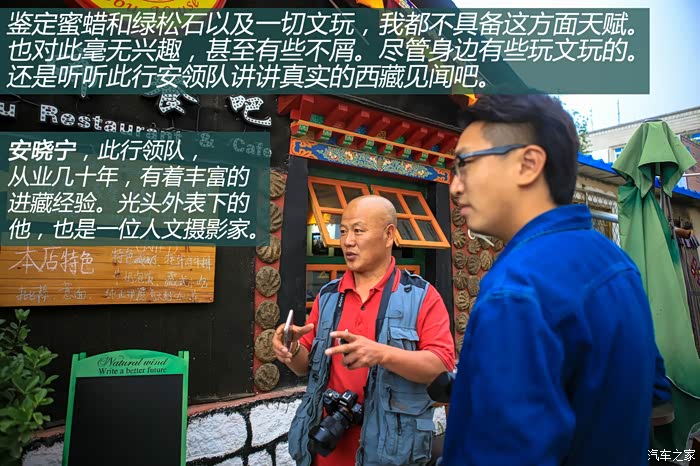 鉴定蜜蜡和绿松石以及一切文玩，我都不具备这方面天赋。
也对此毫无兴趣，甚至有些不屑。尽管身边有些玩文玩的。
还是听听此行安领队讲讲真实的西藏见闻吧。
u Restaurant & Cafe
安晓宁，此行领队，
从业几十年，有着丰富的
进藏经验。光头外表下的
他，也是一位人文摄影家。
本店特色
Natural wind
Write a better future
汽车之家